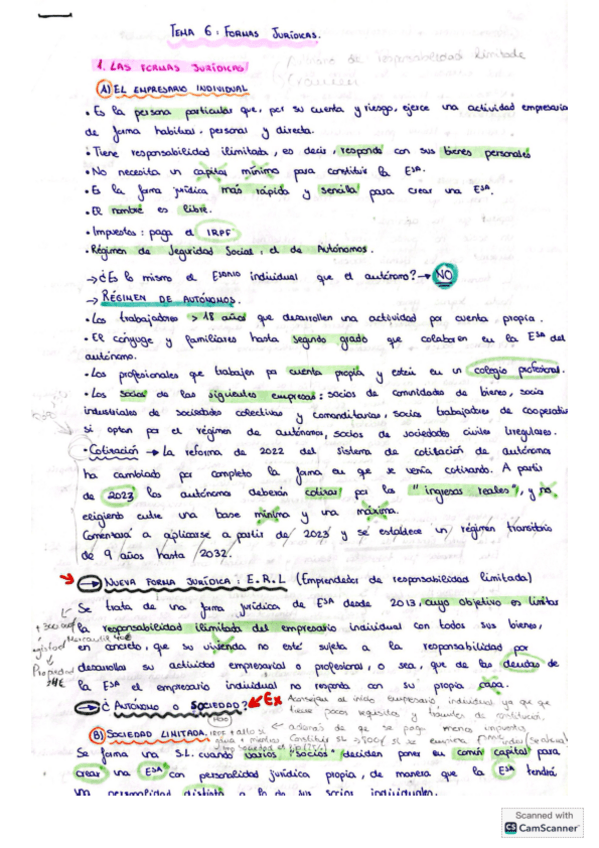 TEMA 6: FORMAS JURÍDICAS.
1. LAS FORMAS JURÍDICAS
A) EL EMPRESARIO INDIVIDUAL
• Es la persona particular que, por su cuenta y riesgo, ejerce una actividad empresaria
de forma habitual, personal y directa.
• Tiene responsabilidad ilimitada, es decir, responde con sus bienes personales
• No necesita un capital mínimo para constituir la Esa.
• Es la forma jurídica más rápida y sencilla para crear una Esa.
• El nombre es libre.
• Impuestos: paga el IRPF
• Régimen de Seguridad Social, el de Autónomos.
→ ¿Es lo mismo el Esario individual que el autónomo? → NO
→ RÉGIMEN DE AUTÓNOMOS.
• Los trabajadores > 18 años que desarrollen una actividad por cuenta propia.
• El cónyuge y familiares hasta segundo grado que colaboren en la Esa del
autónomo.
• Los profesionales que trabajen por cuenta propia y estén en un colegio profesional.
• Los socios de las siguientes empresas: socios de comunidades de bienes, socios
industriales de sociedades colectivas y comanditarias, socios trabajadores de cooperativ
si optan por el régimen de autónomos, socios de sociedades civiles irregulares.
• Cotización → La reforma de 2022 del sistema de cotización de autónomos
ha cambiado por completo la forma en que se venía cotizando. A partir
de 2023 los autónomo deberán cotizar por los "ingresos reales", y no
eligiendo entre una base mínima y una máxima.
Comenzará a aplicarse a partir de 2023 y se establece un régimen transitorio
de 9 años hasta 2032.
→ NUEVA FORMA JURÍDICA: E.R.L (Emprendedor de responsabilidad limitada)
Se trata de una forma jurídica de Esa desde 2013, cuyo objetivo es limitar
la responsabilidad ilimitada del empresario individual con todos sus bienes,
en concreto, que su vivienda no esté sujeta a la responsabilidad por
desarrollar su actividad empresarial o profesional, o sea, que de las deudas de
la Esa el empresario individual no responta con su propia casa.
→ ¿AUTÓNOMO O SOCIEDAD? ← Ex
Aconsejan al inicio empresario individual ya que
tiene pocos requisitos y trámites de constitución,
además de que se paga menos impuestos
B) SOCIEDAD LIMITADA.
Se forma una S.L. cuando varios "socios" deciden poner en común capital para
crear una Esa con personalidad jurídica propia, de manera que la Esa tendrá
una personalidad distinta a la de sus socios individuales.
Scanned with
CS CamScanner